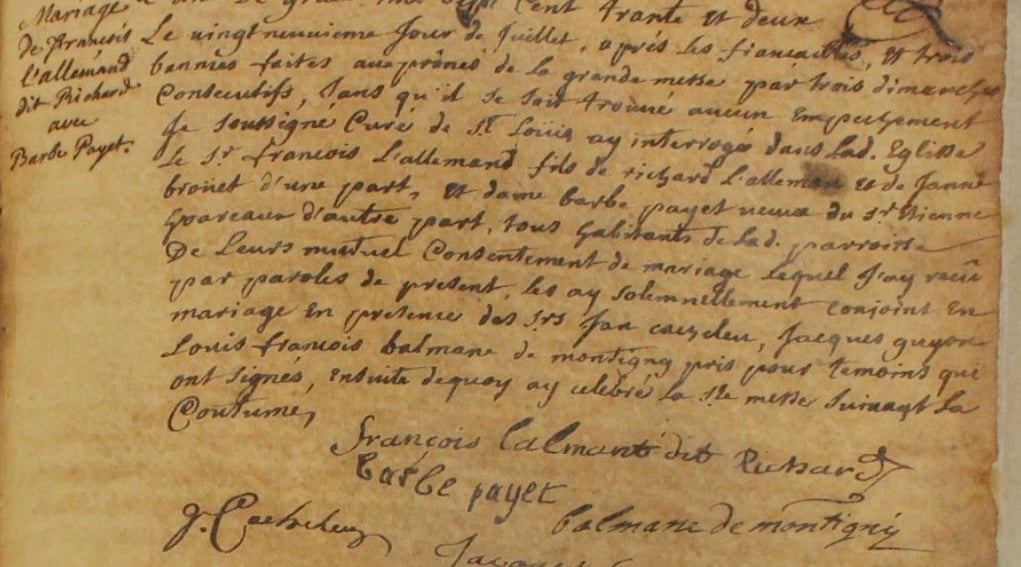 Mariage
de François
L'allemand
dit Richard
avec
Barbe Payet.
Cent trante et deux
Le vingt neuvieme Jour de Juillet, aprés les fiançailles, et trois
bannies faites aux prônes de la grande messe par trois dimanches
Consecutifs, sans qu'il se soit trouvé aucun Empechement
Je soussigné Curé de St. Loüis ay interrogé dans lad. Eglisse
Le Sr. francois L'allemand fils de richard L'alleman et de Janne
broüet d'une part, et dame barbe payet veuve du Sr. Etienne
d'autre part, tous habitants de lad. parroisse
De Leurs mutuel Consentement de mariage lequel J'ay receu
par paroles de present, les ay solemnellement conjoint en
mariage En presence des Srs Jan, Jacques guyon
Louis françois balmane de montigny pris pour temoins qui
ont signés, Ensuite dequoy ay celebré la Ste messe suivant la
Coutume,
françois lalmant dit Richard
barbe payet
balmane de montigni